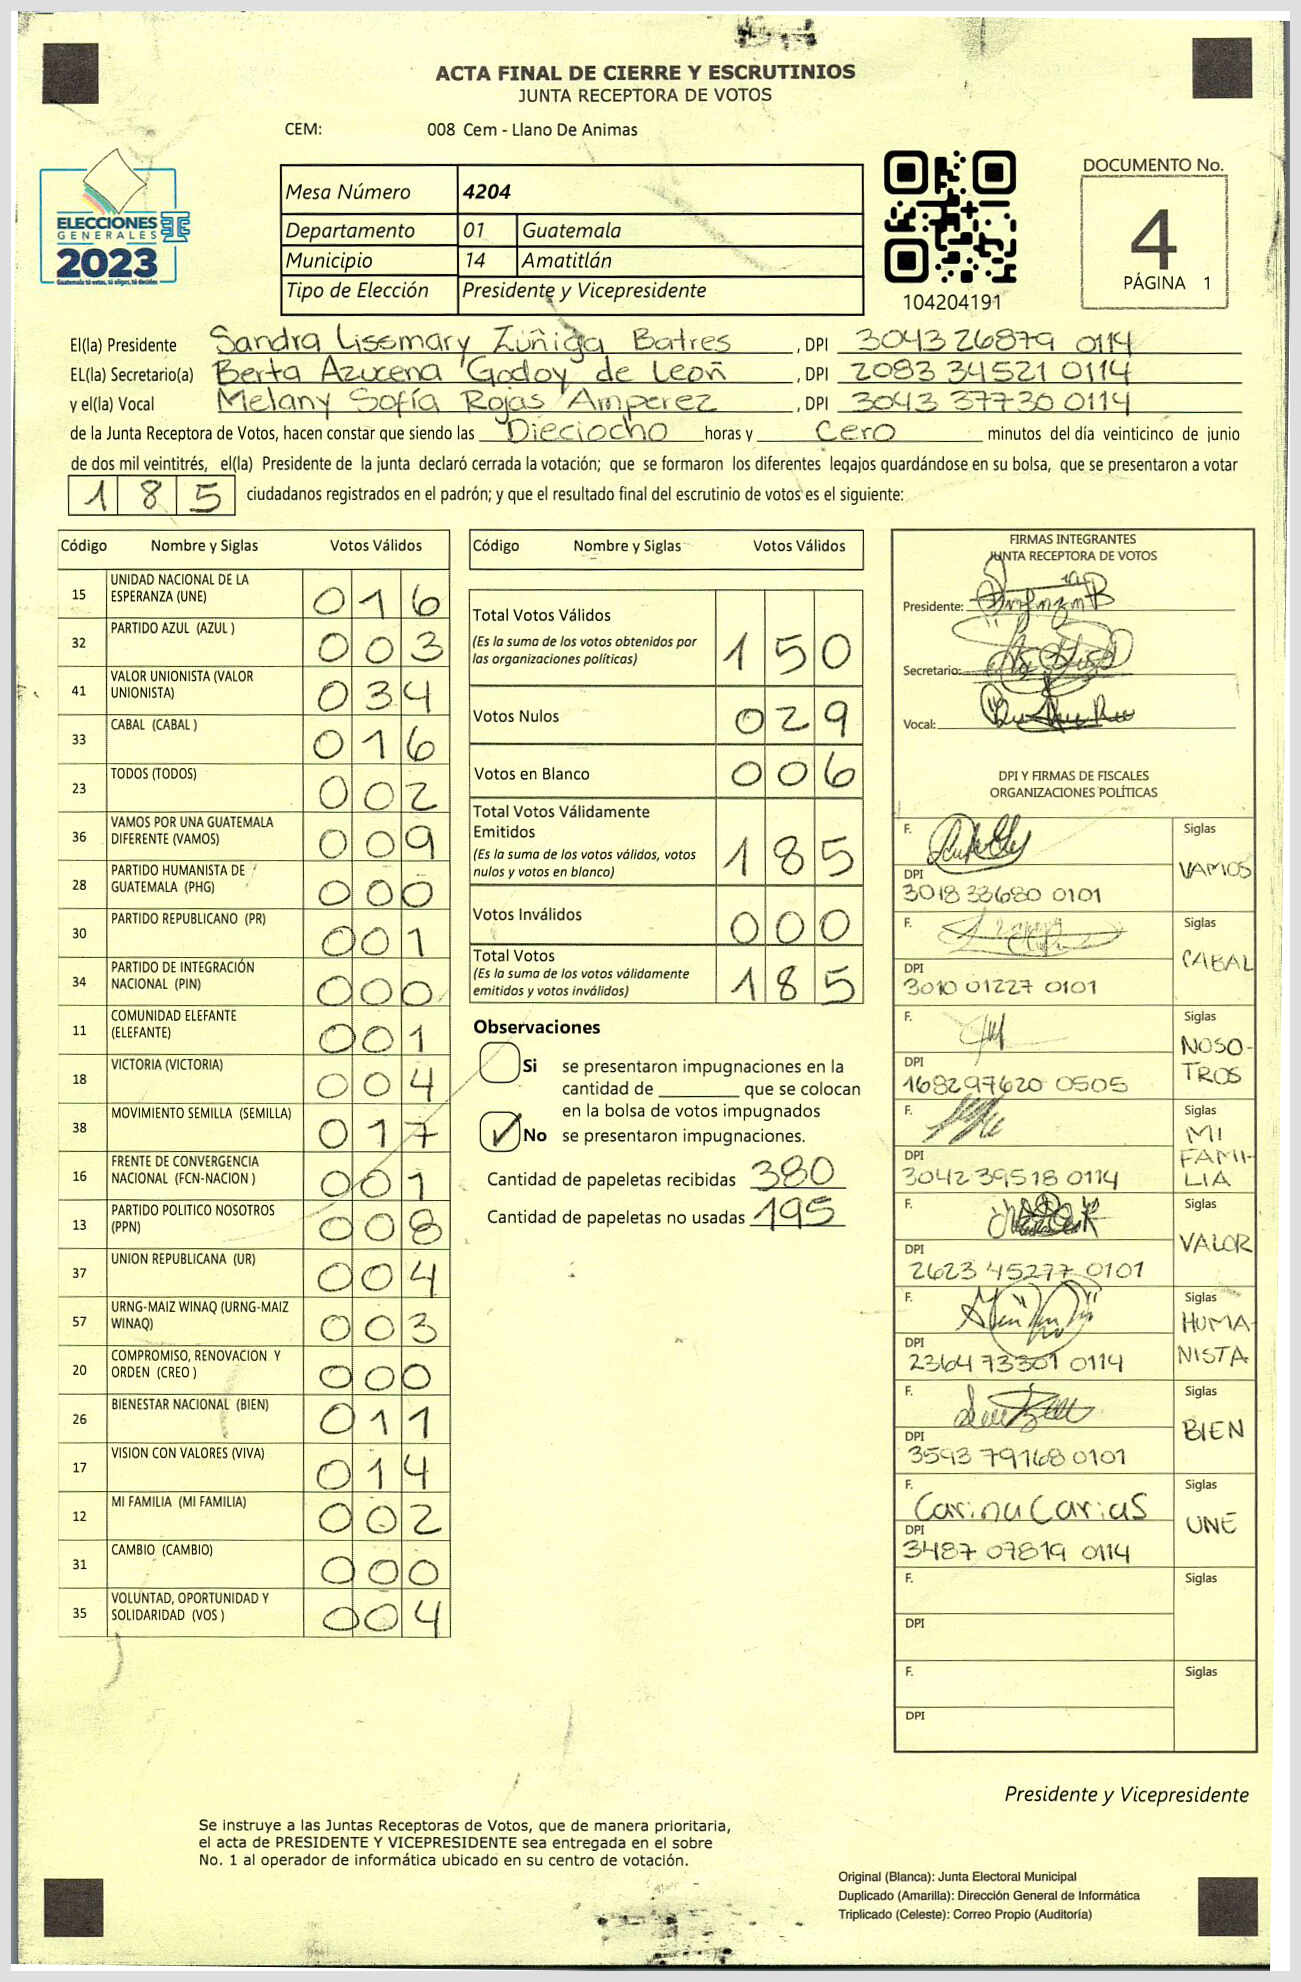 ACTA FINAL DE CIERRE Y ESCRUTINIOS
JUNTA RECEPTORA DE VOTOS
CEM: 008 Cem - Llano De Animas
ELECCIONES
GENERALES
2023
Guatemala tú votas, tú eliges, tú decides
Mesa Número 4204
Departamento 01 Guatemala
Municipio 14 Amatitlán
Tipo de Elección Presidente y Vicepresidente
104204191
DOCUMENTO No.
4
PÁGINA 1
El(la) Presidente Sandra Lissmary Zúñiga Batres , DPI 3043 26879 0114
EL(la) Secretario(a) Berta Azucena Godoy de León , DPI 2083 34521 0114
y el(la) Vocal Melany Sofía Rojas Amperez , DPI 3043 37730 0114
de la Junta Receptora de Votos, hacen constar que siendo las Dieciocho horas y Cero minutos del día veinticinco de junio
de dos mil veintitrés, el(la) Presidente de la junta declaró cerrada la votación; que se formaron los diferentes legajos guardándose en su bolsa, que se presentaron a votar
185 ciudadanos registrados en el padrón; y que el resultado final del escrutinio de votos es el siguiente:
Código Nombre y Siglas Votos Válidos
15 UNIDAD NACIONAL DE LA
ESPERANZA (UNE) 016
32 PARTIDO AZUL (AZUL ) 003
41 VALOR UNIONISTA (VALOR
UNIONISTA) 034
33 CABAL (CABAL ) 016
23 TODOS (TODOS) 002
36 VAMOS POR UNA GUATEMALA
DIFERENTE (VAMOS) 009
28 PARTIDO HUMANISTA DE
GUATEMALA (PHG) 000
30 PARTIDO REPUBLICANO (PR) 001
34 PARTIDO DE INTEGRACIÓN
NACIONAL (PIN) 000
11 COMUNIDAD ELEFANTE
(ELEFANTE) 001
18 VICTORIA (VICTORIA) 004
38 MOVIMIENTO SEMILLA (SEMILLA) 017
16 FRENTE DE CONVERGENCIA
NACIONAL (FCN-NACION ) 001
13 PARTIDO POLITICO NOSOTROS
(PPN) 008
37 UNION REPUBLICANA (UR) 004
57 URNG-MAIZ WINAQ (URNG-MAIZ
WINAQ) 003
20 COMPROMISO, RENOVACION Y
ORDEN (CREO ) 000
26 BIENESTAR NACIONAL (BIEN) 011
17 VISION CON VALORES (VIVA) 014
12 MI FAMILIA (MI FAMILIA) 002
31 CAMBIO (CAMBIO) 000
35 VOLUNTAD, OPORTUNIDAD Y
SOLIDARIDAD (VOS ) 004
Código Nombre y Siglas Votos Válidos
Total Votos Válidos
(Es la suma de los votos obtenidos por
las organizaciones políticas) 150
Votos Nulos 029
Votos en Blanco 006
Total Votos Válidamente
Emitidos
(Es la suma de los votos válidos, votos
nulos y votos en blanco) 185
Votos Inválidos 000
Total Votos
(Es la suma de los votos válidamente
emitidos y votos inválidos) 185
Observaciones
Si se presentaron impugnaciones en la
cantidad de ________ que se colocan
en la bolsa de votos impugnados
No se presentaron impugnaciones.
Cantidad de papeletas recibidas 380
Cantidad de papeletas no usadas 195
FIRMAS INTEGRANTES
JUNTA RECEPTORA DE VOTOS
Presidente:
Secretario:
Vocal:
DPI Y FIRMAS DE FISCALES
ORGANIZACIONES POLÍTICAS
F. Siglas
VAMOS
DPI
3018 33680 0101
F. Siglas
CABAL
DPI
3010 01227 0101
F. Siglas
NOSO-
TROS
DPI
168297620 0505
F. Siglas
MI
FAMI-
LIA
DPI
3042 39518 0114
F. Siglas
VALOR
DPI
2623 45277 0101
F. Siglas
HUMA-
NISTA
DPI
2364 73301 0114
F. Siglas
BIEN
DPI
3593 79168 0101
F. Carina Carias Siglas
UNE
DPI
3487 07819 0114
F. Siglas
DPI
F. Siglas
DPI
Presidente y Vicepresidente
Se instruye a las Juntas Receptoras de Votos, que de manera prioritaria,
el acta de PRESIDENTE Y VICEPRESIDENTE sea entregada en el sobre
No. 1 al operador de informática ubicado en su centro de votación.
Original (Blanca): Junta Electoral Municipal
Duplicado (Amarilla): Dirección General de Informática
Triplicado (Celeste): Correo Propio (Auditoría)